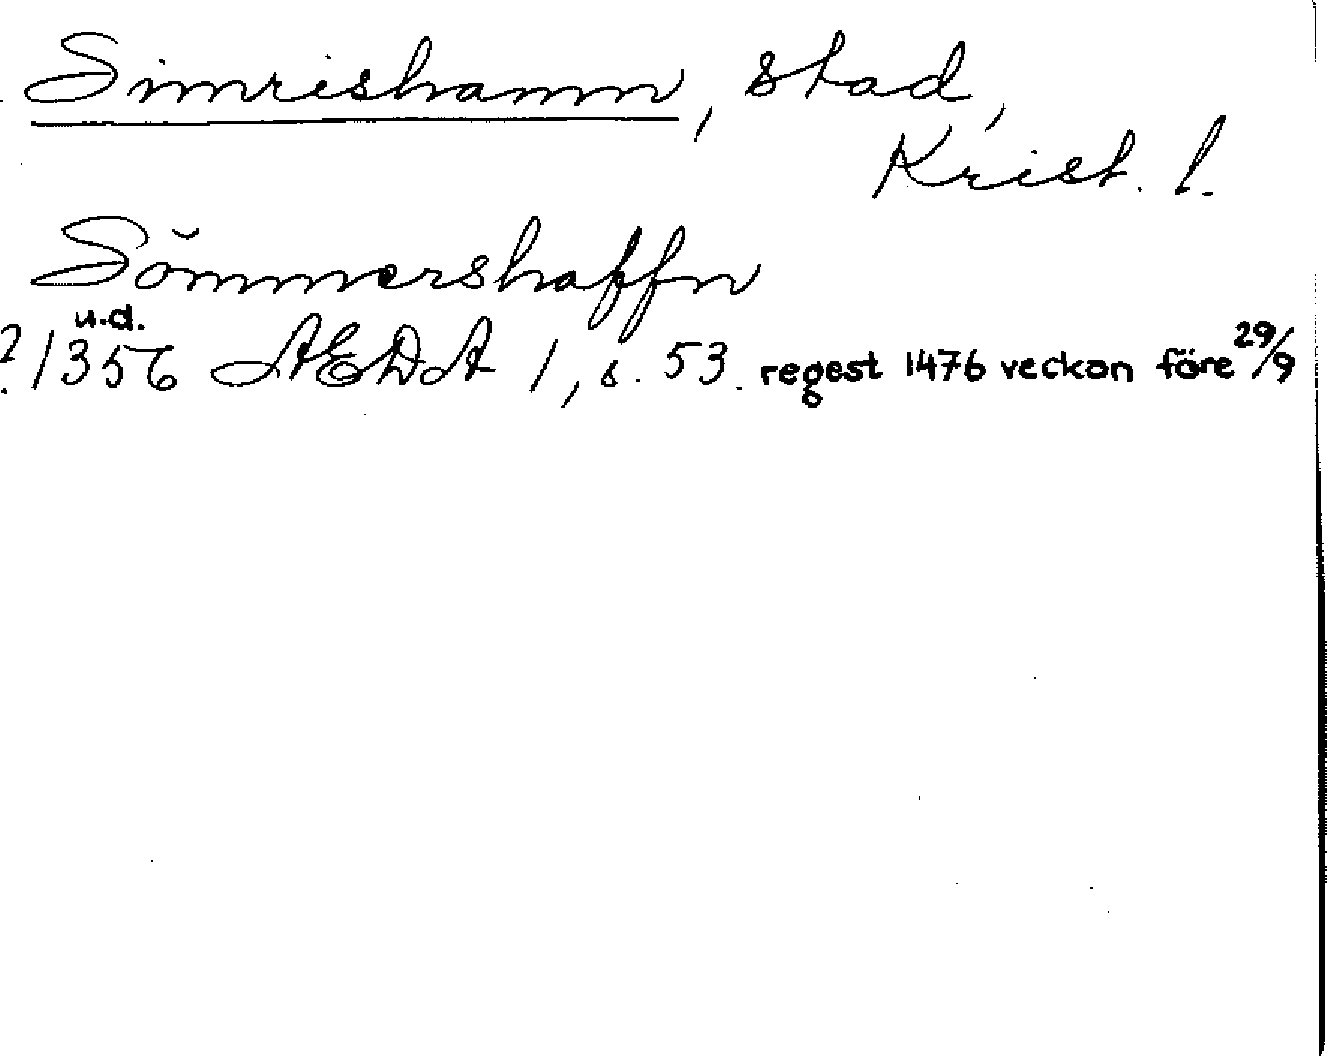 Simrishamn, stad,
Krist. l.
Sŏmmershaffn
u.d.
? 1356 AEDA 1, s. 53. regest 1476 veckan före 29/9